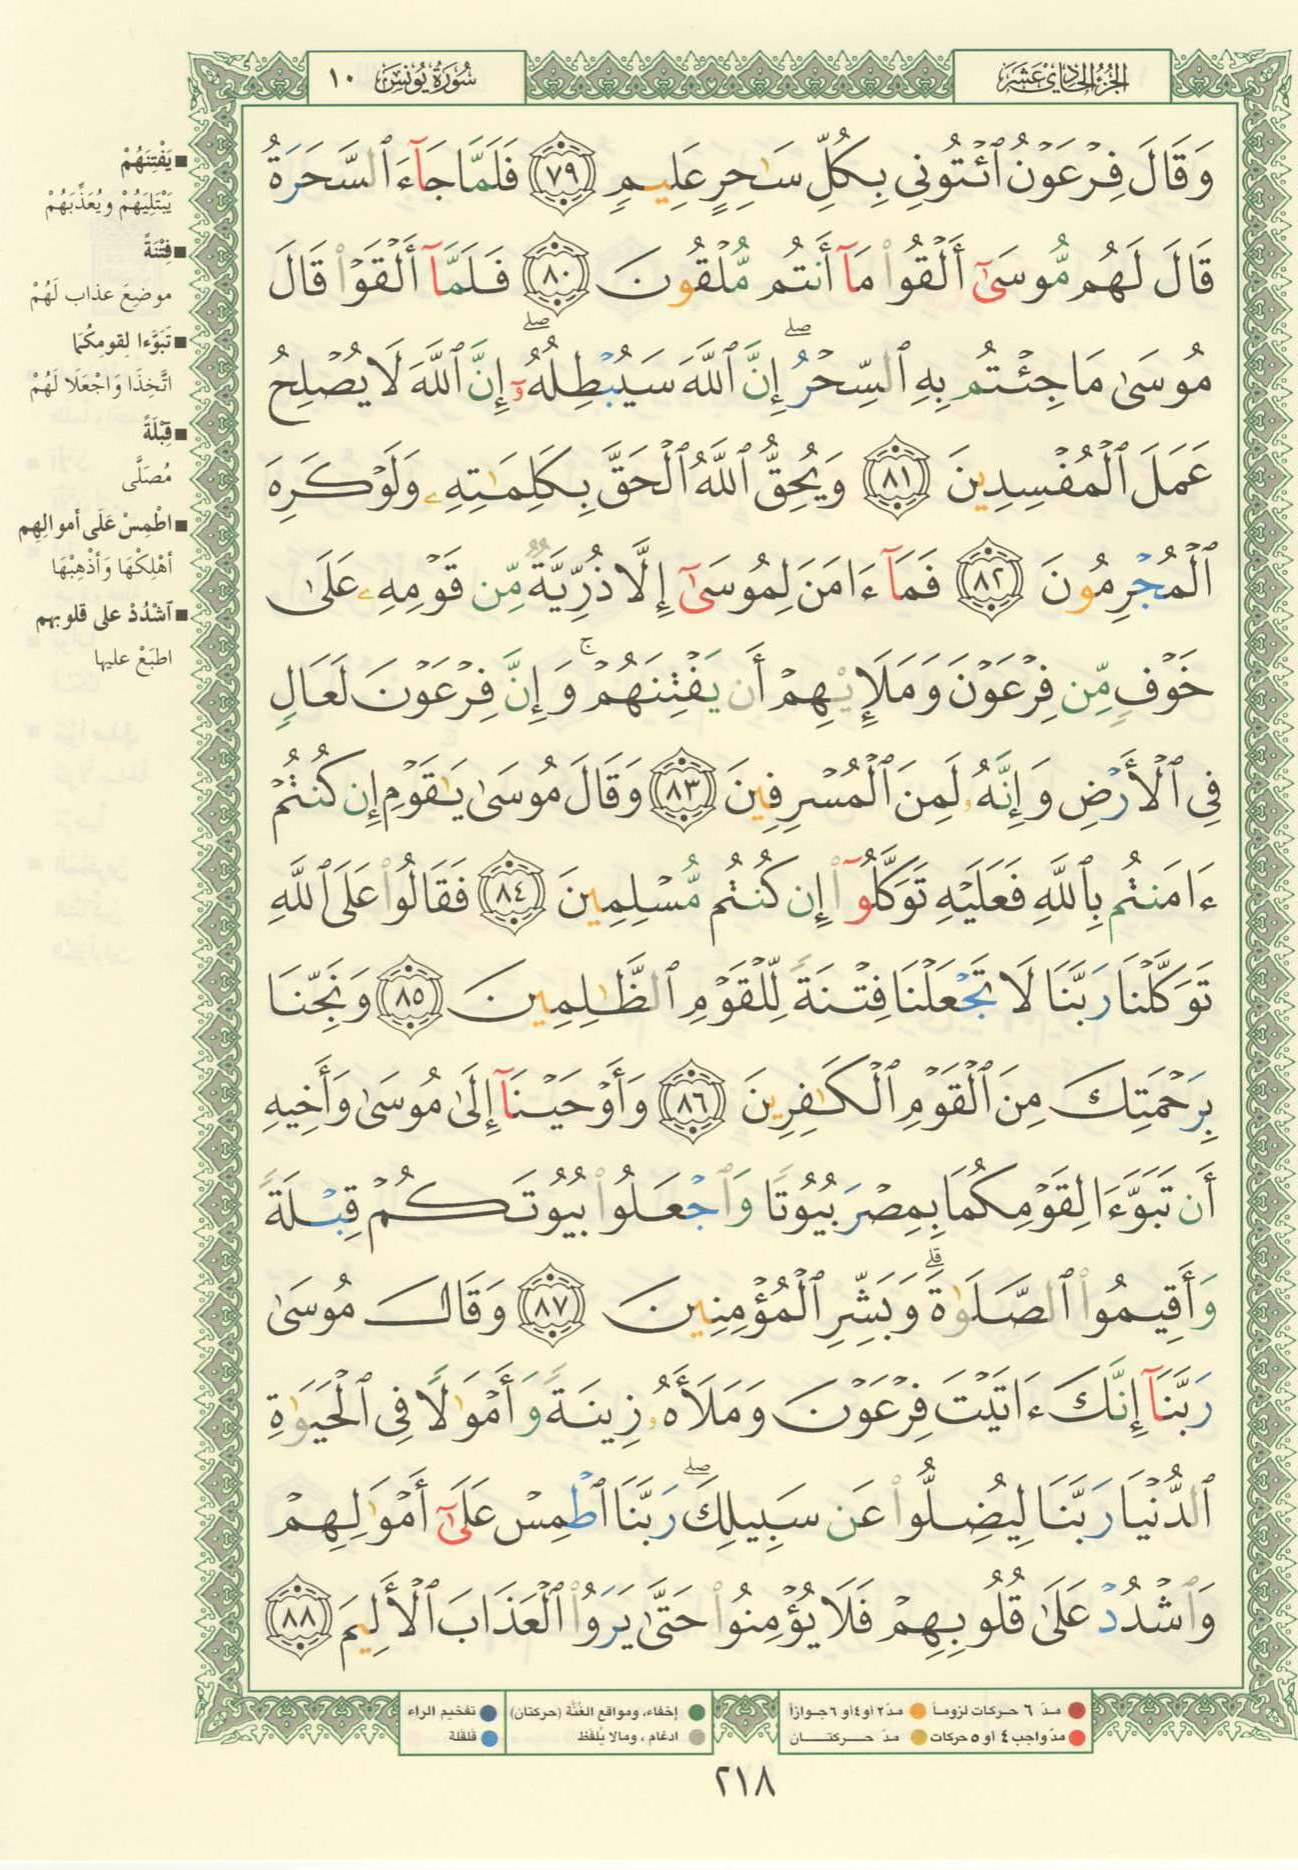 الجزء الحادي عشر
سورة يونس ١٠
وَقَالَ فِرْعَوْنُ ٱئْتُونِى بِكُلِّ سَٰحِرٍ عَلِيمٍ ٧٩ فَلَمَّا جَآءَ ٱلسَّحَرَةُ
قَالَ لَهُم مُّوسَىٰٓ أَلْقُوا۟ مَآ أَنتُم مُّلْقُونَ ٨٠ فَلَمَّآ أَلْقَوْا۟ قَالَ
مُوسَىٰ مَا جِئْتُم بِهِ ٱلسِّحْرُ ۖ إِنَّ ٱللَّهَ سَيُبْطِلُهُۥٓ ۖ إِنَّ ٱللَّهَ لَا يُصْلِحُ
عَمَلَ ٱلْمُفْسِدِينَ ٨١ وَيُحِقُّ ٱللَّهُ ٱلْحَقَّ بِكَلِمَٰتِهِۦ وَلَوْ كَرِهَ
ٱلْمُجْرِمُونَ ٨٢ فَمَآ ءَامَنَ لِمُوسَىٰٓ إِلَّا ذُرِّيَّةٌ مِّن قَوْمِهِۦ عَلَىٰ
خَوْفٍ مِّن فِرْعَوْنَ وَمَلَإِي۟هِمْ أَن يَفْتِنَهُمْ ۚ وَإِنَّ فِرْعَوْنَ لَعَالٍ
فِى ٱلْأَرْضِ وَإِنَّهُۥ لَمِنَ ٱلْمُسْرِفِينَ ٨٣ وَقَالَ مُوسَىٰ يَٰقَوْمِ إِن كُنتُمْ
ءَامَنتُم بِٱللَّهِ فَعَلَيْهِ تَوَكَّلُوٓا۟ إِن كُنتُم مُّسْلِمِينَ ٨٤ فَقَالُوا۟ عَلَى ٱللَّهِ
تَوَكَّلْنَا رَبَّنَا لَا تَجْعَلْنَا فِتْنَةً لِّلْقَوْمِ ٱلظَّٰلِمِينَ ٨٥ وَنَجِّنَا
بِرَحْمَتِكَ مِنَ ٱلْقَوْمِ ٱلْكَٰفِرِينَ ٨٦ وَأَوْحَيْنَآ إِلَىٰ مُوسَىٰ وَأَخِيهِ
أَن تَبَوَّءَا لِقَوْمِكُمَا بِمِصْرَ بُيُوتًا وَٱجْعَلُوا۟ بُيُوتَكُمْ قِبْلَةً
وَأَقِيمُوا۟ ٱلصَّلَوٰةَ ۗ وَبَشِّرِ ٱلْمُؤْمِنِينَ ٨٧ وَقَالَ مُوسَىٰ
رَبَّنَآ إِنَّكَ ءَاتَيْتَ فِرْعَوْنَ وَمَلَأَهُۥ زِينَةً وَأَمْوَٰلًا فِى ٱلْحَيَوٰةِ
ٱلدُّنْيَا رَبَّنَا لِيُضِلُّوا۟ عَن سَبِيلِكَ ۖ رَبَّنَا ٱطْمِسْ عَلَىٰٓ أَمْوَٰلِهِمْ
وَٱشْدُدْ عَلَىٰ قُلُوبِهِمْ فَلَا يُؤْمِنُوا۟ حَتَّىٰ يَرَوُا۟ ٱلْعَذَابَ ٱلْأَلِيمَ ٨٨
■ يَفْتِنَهُمْ
يَبْتَلِيَهُمْ ويُعَذِّبَهُمْ
■ فِتْنَةً
موضِعَ عذاب لَهُمْ
■ تَبَوَّءا لِقومِكُمَا
اتَّخِذَا وَاجْعَلَا لَهُمْ
■ قِبْلَةً
مُصَلَّى
■ اطْمِسْ عَلَى أموالِهِم
أهْلِكْهَا وَأذْهِبْهَا
■ ٱشْدُدْ على قلوبهم
اطبَعْ عليها
مدّ ٦ حركات لزوماً
مدّ ٢ أو ٤ أو ٦ جوازاً
إخفاء، ومواقع الغُنَّة (حركتان)
تفخيم الراء
مدّ واجب ٤ أو ٥ حركات
مدّ حركتان
ادغام، ومالا يُلفَظ
قلقلة
٢١٨